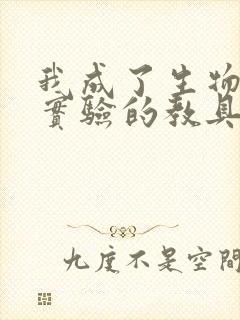 我成了生物
實驗的教具
九度不是空間